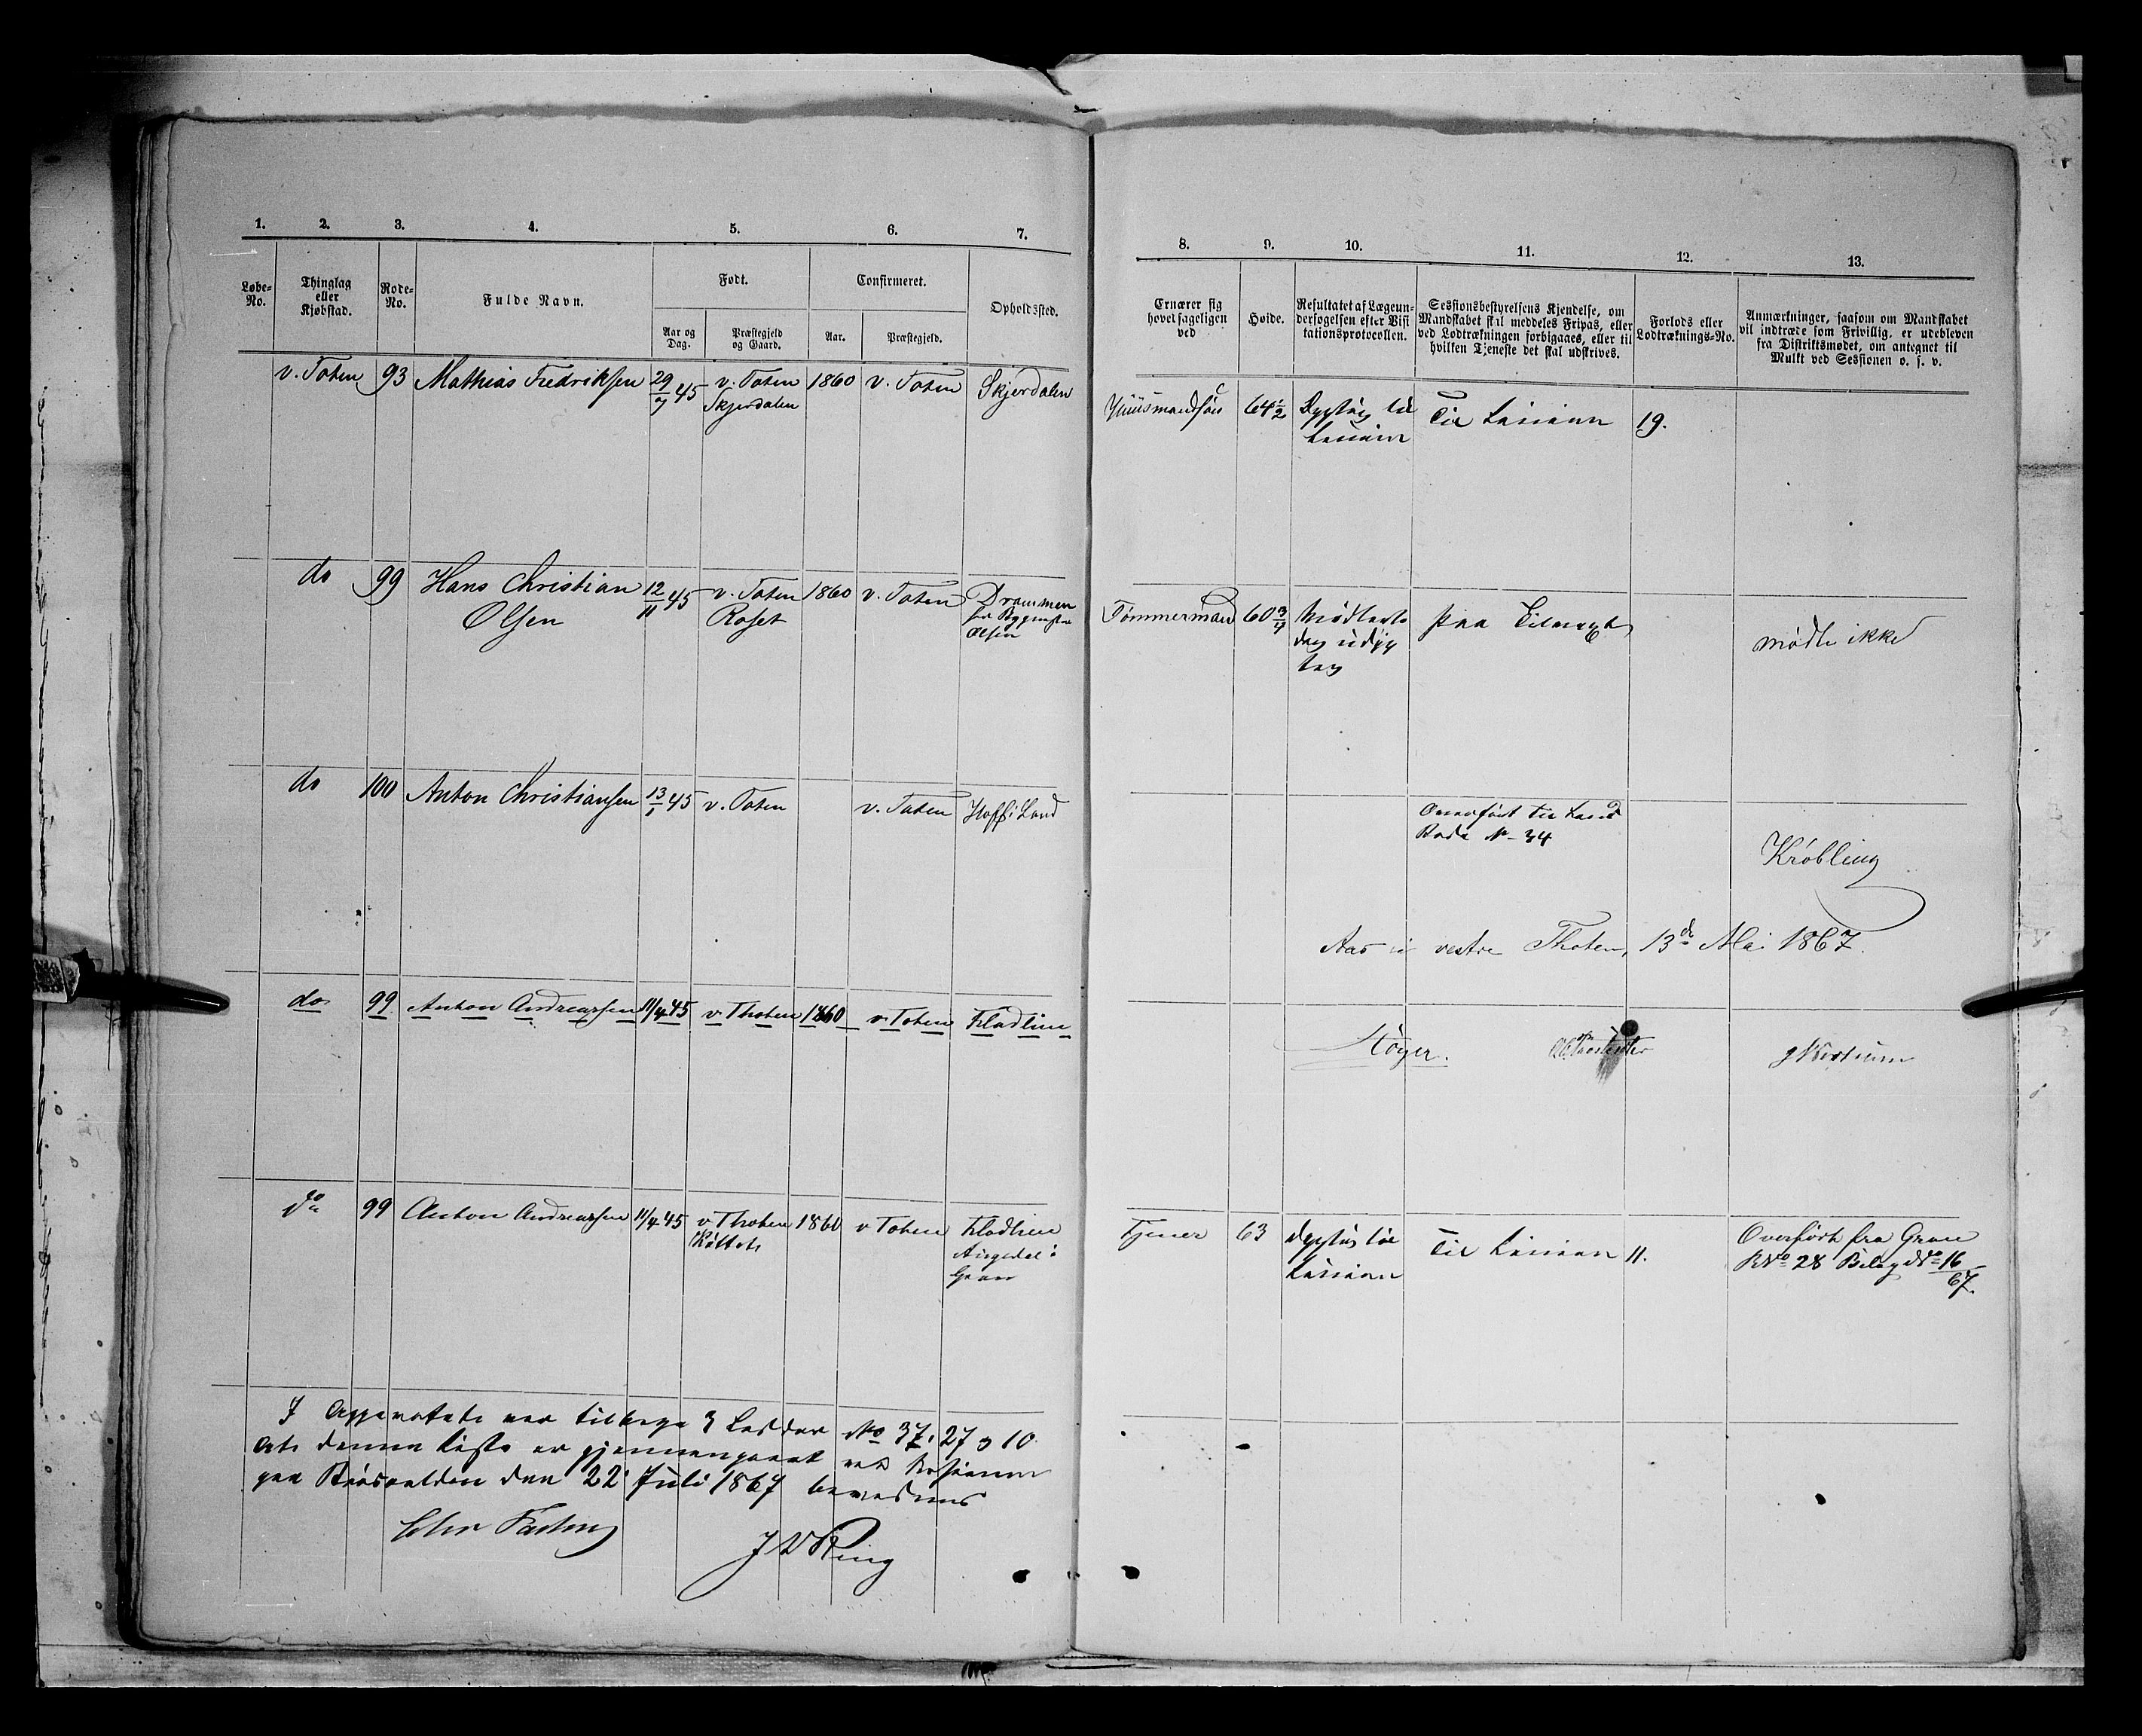 1. 2. 3. 4. 5. 6. 7.
Løbe-No.
Thinglag eller Kjøbstad.
Rode-No.
Fulde Navn.
Født.
Aar og Dag.
Præstegjeld og Gaard.
Confirmeret.
Aar.
Præstegjeld.
Opholdssted.
v. Toten 93 Mathias Fredriksen 29/7 45 v. Toten 1860 v. Toten Skjerdalen
Skjerdalen
do 99 Hans Christian 12/11 45 v. Toten 1860 v. Toten Drammen
Olsen Roset
Olsen
do 100 Anton Christiansen 13/1 45 v. Toten v. Toten Hoff i Land
do 99. Anton Andreassen 11/4 45 v Thoten 1860 v Toten Fladlien
do 99 Anton Andreassen 11/4 45 v Thoten 1860 v Toten Fladlien
Gran
tilbage 3 Lodder No 37, 27 og 10.
denne Liste er gjennemgaaet
den 22 Juli 1867
J W Ring
8. 9. 10. 11. 12. 13.
Ernærer sig hovedsageligen ved
Høide.
Resultatet af Lægeundersøgelsen efter Visitationsprotocollen.
Sessionsbestyrelsens Kjendelse, om Mandskabet skal meddeles Fripas, eller ved Lodtrækningen forbigaaes, eller til hvilken Tjeneste det skal udskrives.
Forlods eller Lodtræknings-No.
Anmærkninger, saasom om Mandskabet vil indtræde som Frivillig, er udebleven fra Distriktsmødet, om antegnet til Mulkt ved Sessionen o. s. v.
Huusmandssøn 64 1/2 Dygtig til Til Linien 19.
Linien
Tømmermand 60 3/4 mødte ikke
Overført til Land
Rode No 34
Krøbling
Aas i vestre Thoten, 13de Mai 1867.
Tjener 63 Dygtig til Til Linien 11. Overført fra Gran
Linien RNo 28 Bilag No 16/67.